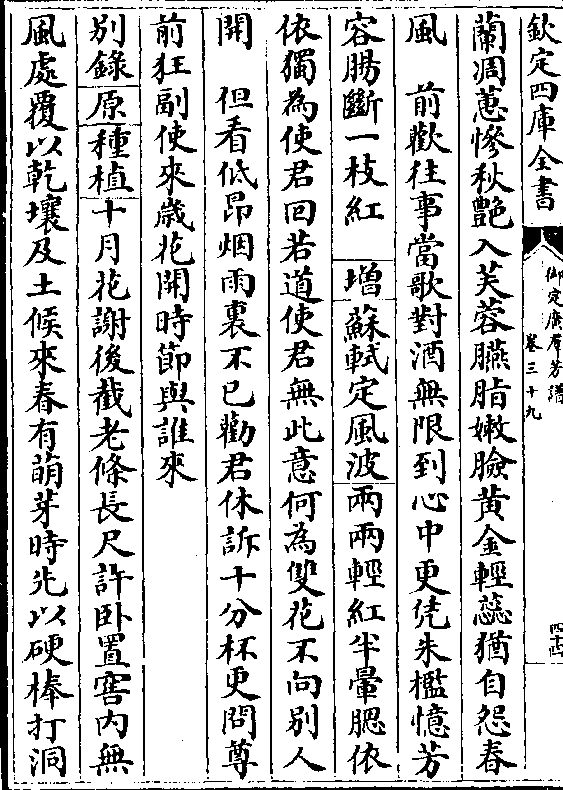 欽定四庫全書
御定廣羣芳譜
卷三十九
四十四
蘭凋蕙慘秋艶入芙蓉臙脂嫩臉黄金輕蕊猶自怨春
風　前歡往事當歌對酒無限到心中更凭朱檻憶芳
容腸斷一枝紅　增蘇軾定風波兩兩輕紅半暈腮依
依獨為使君回若道使君無此意何為雙花不向别人
開　但看低昂烟雨裏不已勸君休訴十分杯更問尊
前狂副使來歲花開時節與誰來
别錄原種植十月花謝後截老條長尺許卧置窖内無
風處覆以乾壤及土候來春有萌芽時先以硬棒打洞